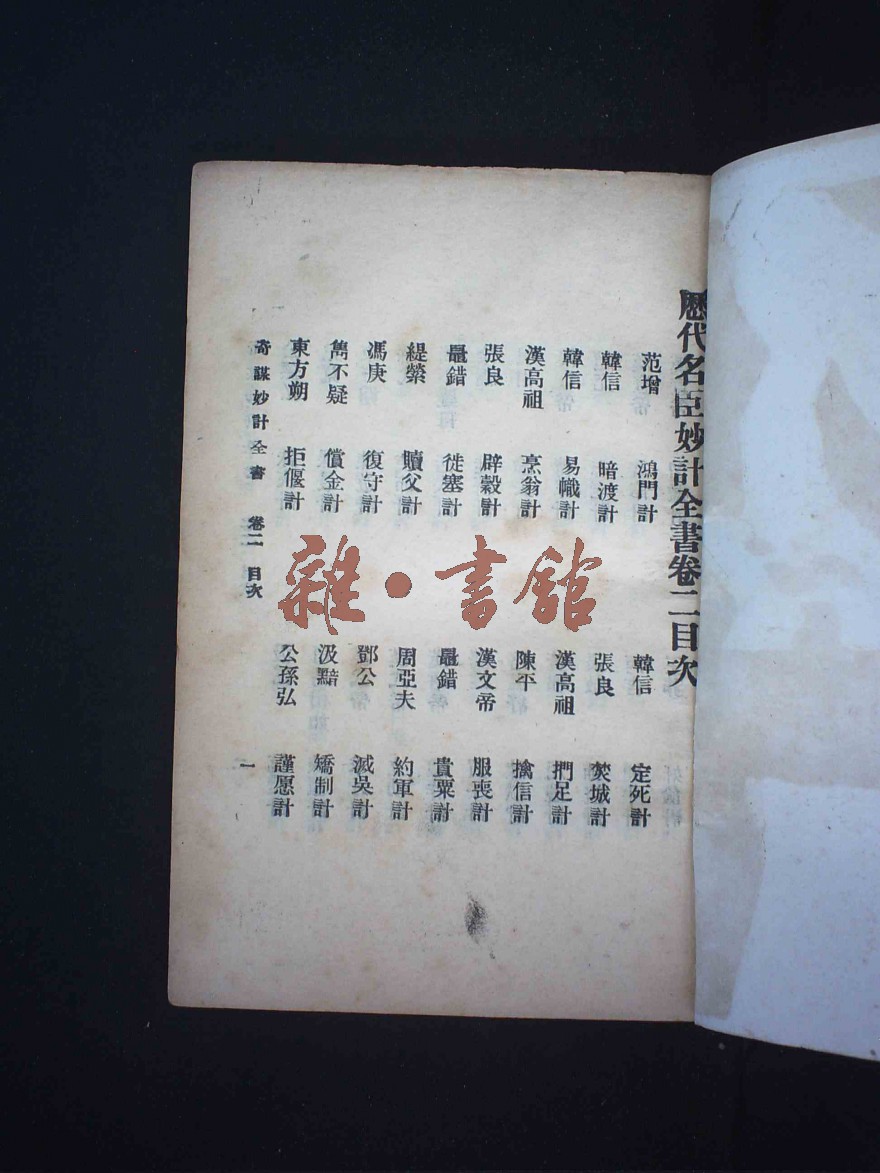 歷代名臣妙計全書卷二目次
范增 鴻門計 韓信 定死計
韓信 暗渡計 張良 焚城計
韓信 易幟計 漢高祖 捫足計
漢高祖 烹翁計 陳平 擒信計
張良 辟穀計 漢文帝 服喪計
鼂錯 徙塞計 鼂錯 貴粟計
緹縈 贖父計 周亞夫 約軍計
馮庚 復守計 鄧公 滅吳計
雋不疑 償金計 汲黯 矯制計
東方朔 拒偃計 公孫弘 謹愿計
奇謀妙計全書 卷二 目次 一
雜·書館